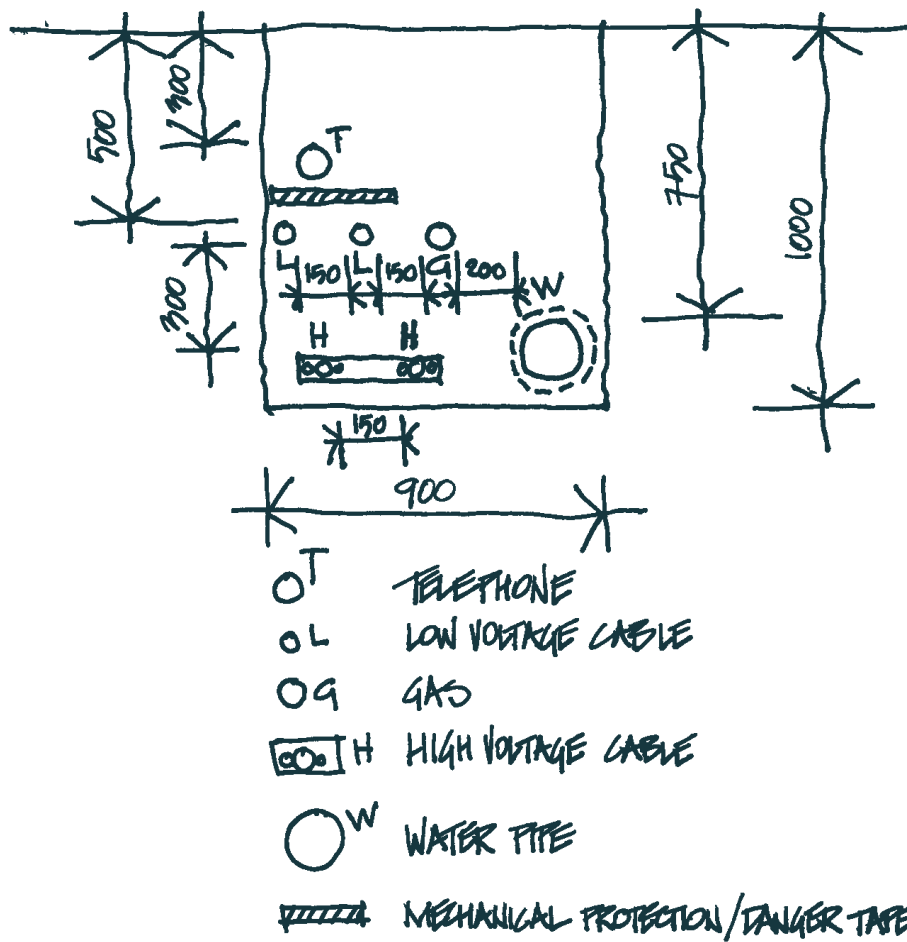 500
300
750
1000
T
300
L 150 L 150 G 200 W
H H
150
900
T TELEPHONE
L LOW VOLTAGE CABLE
G GAS
H HIGH VOLTAGE CABLE
W WATER PIPE
MECHANICAL PROTECTION/DANGER TAPE